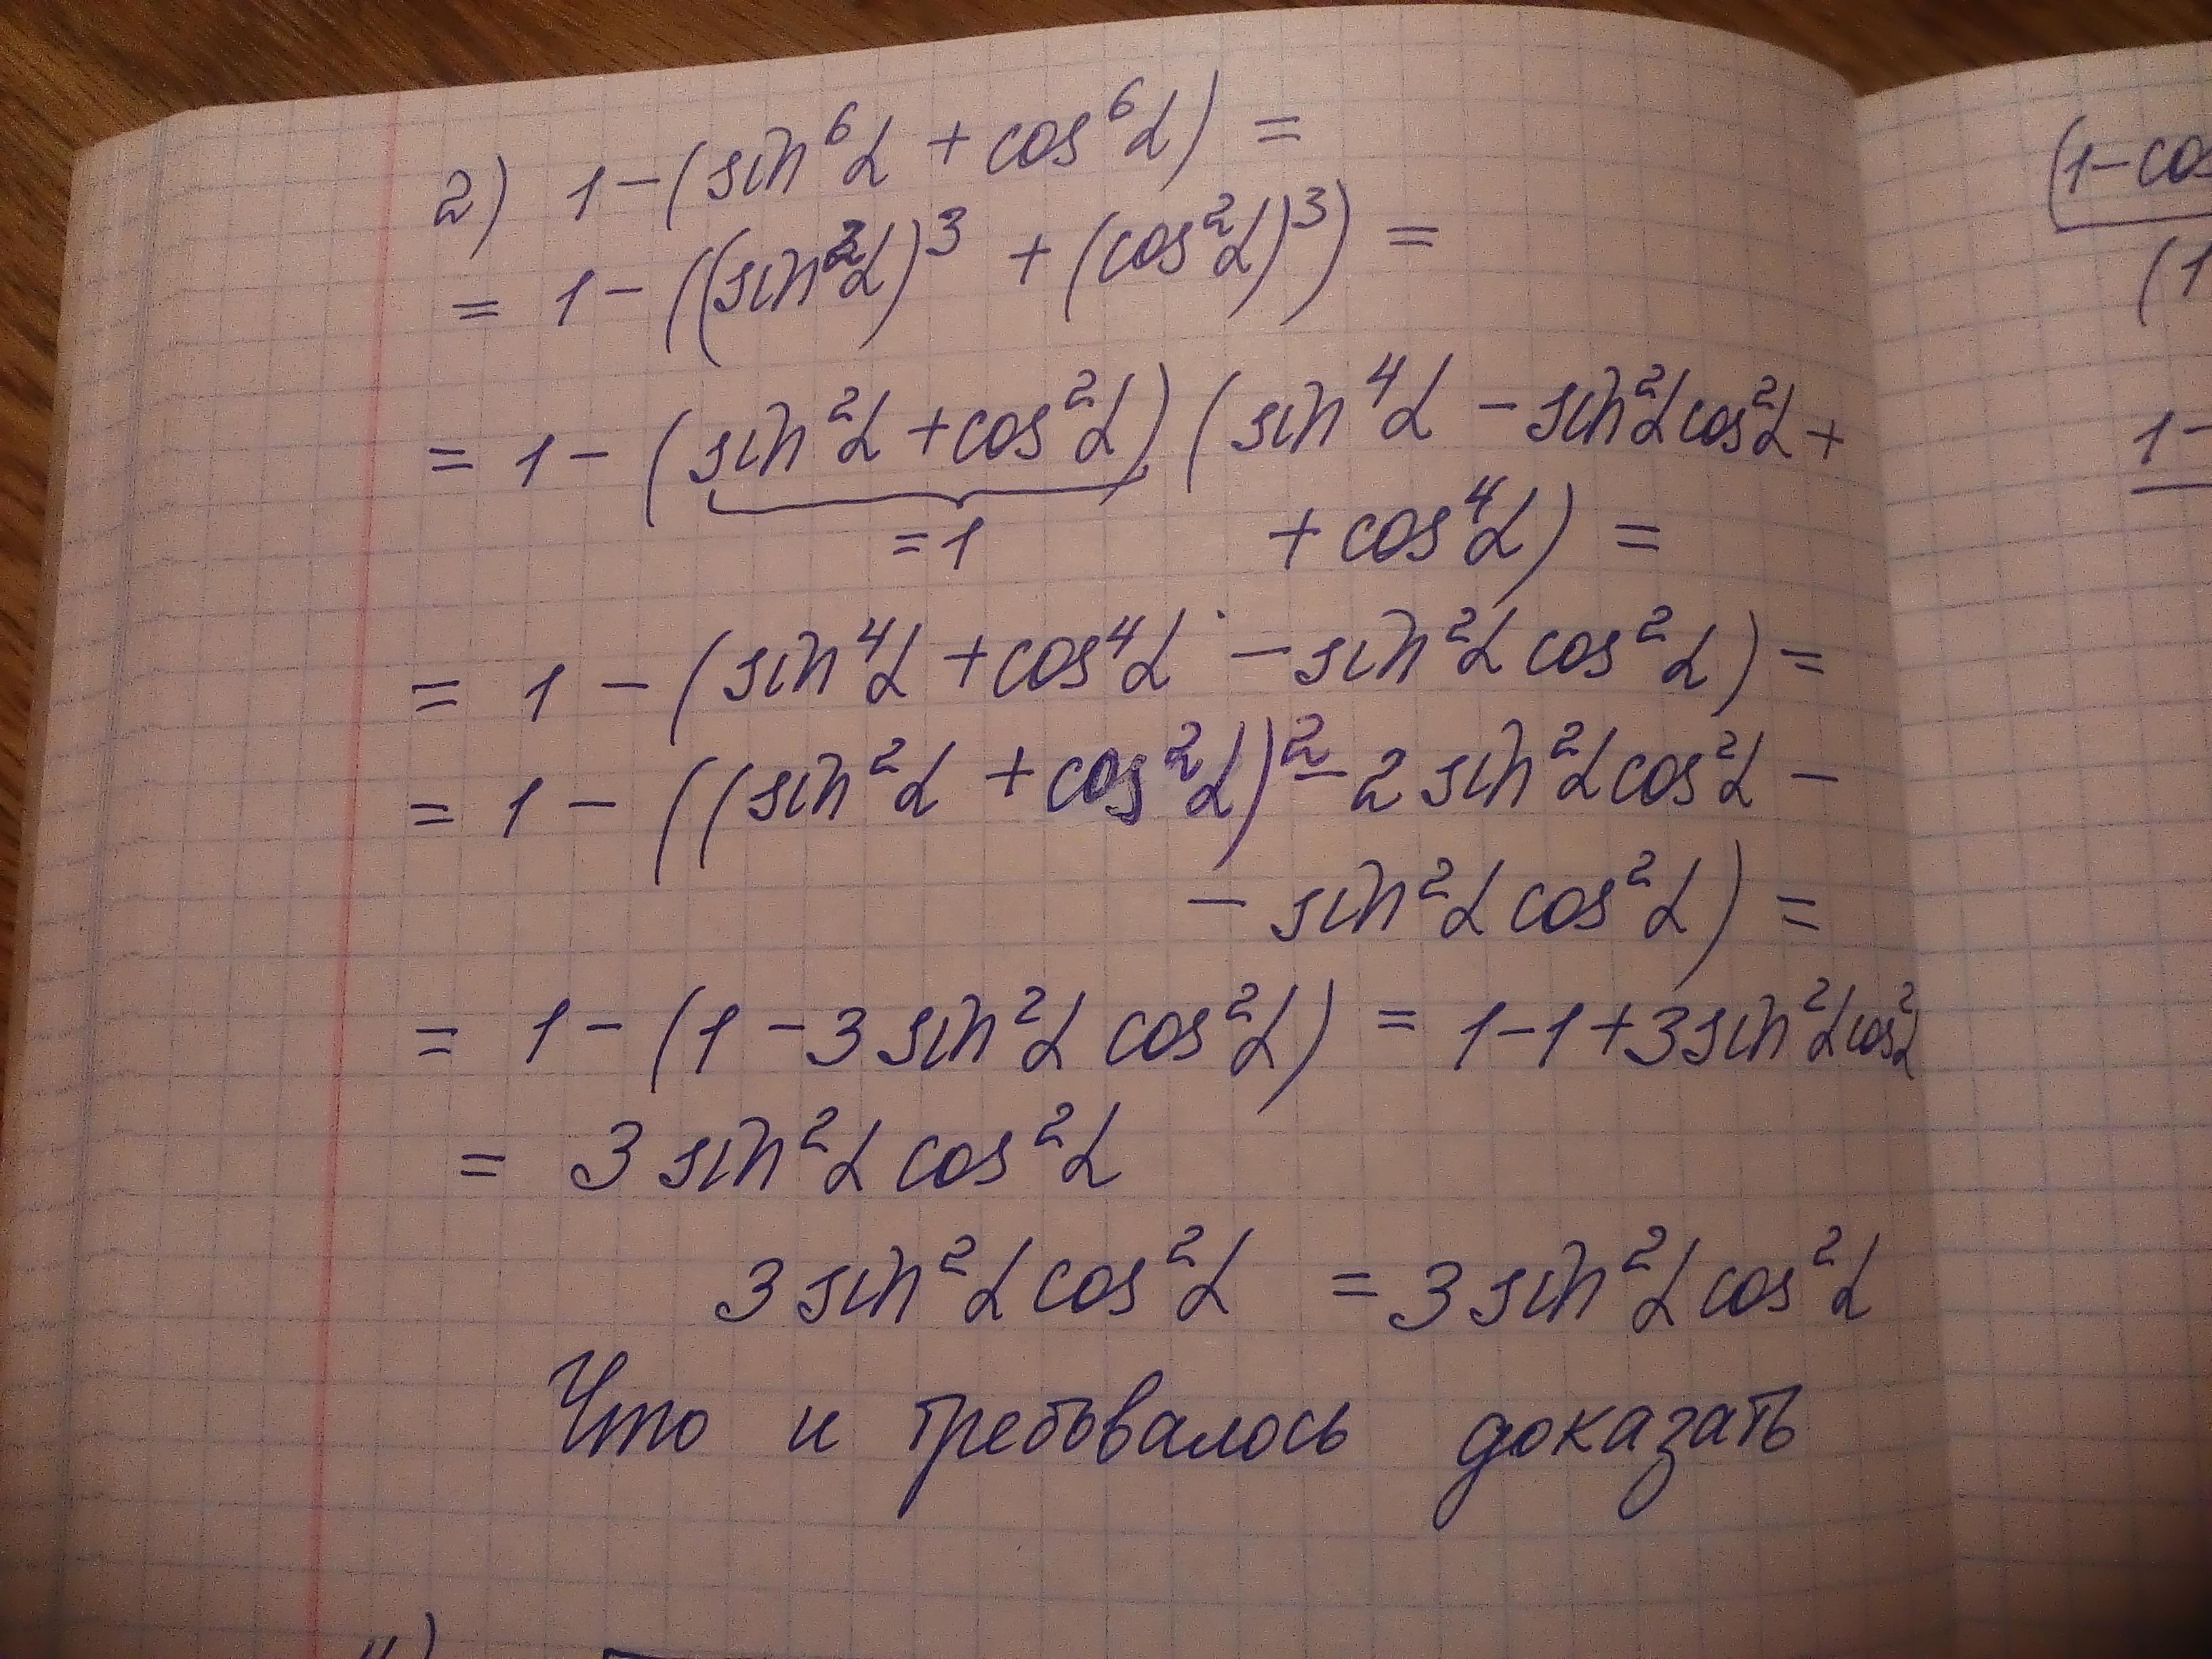 2) 1 - (sin⁶α + cos⁶α) =
= 1 - ((sin²α)³ + (cos²α)³) =
= 1 - (sin²α + cos²α) (sin⁴α - sin²α cos²α +
= 1 + cos⁴α) =
= 1 - (sin⁴α + cos⁴α - sin²α cos²α) =
= 1 - ((sin²α + cos²α)² - 2 sin²α cos²α -
- sin²α cos²α) =
= 1 - (1 - 3 sin²α cos²α) = 1 - 1 + 3 sin²α cos²α
= 3 sin²α cos²α
3 sin²α cos²α = 3 sin²α cos²α
Что и требовалось доказать
(1 - cos
(1
1 -